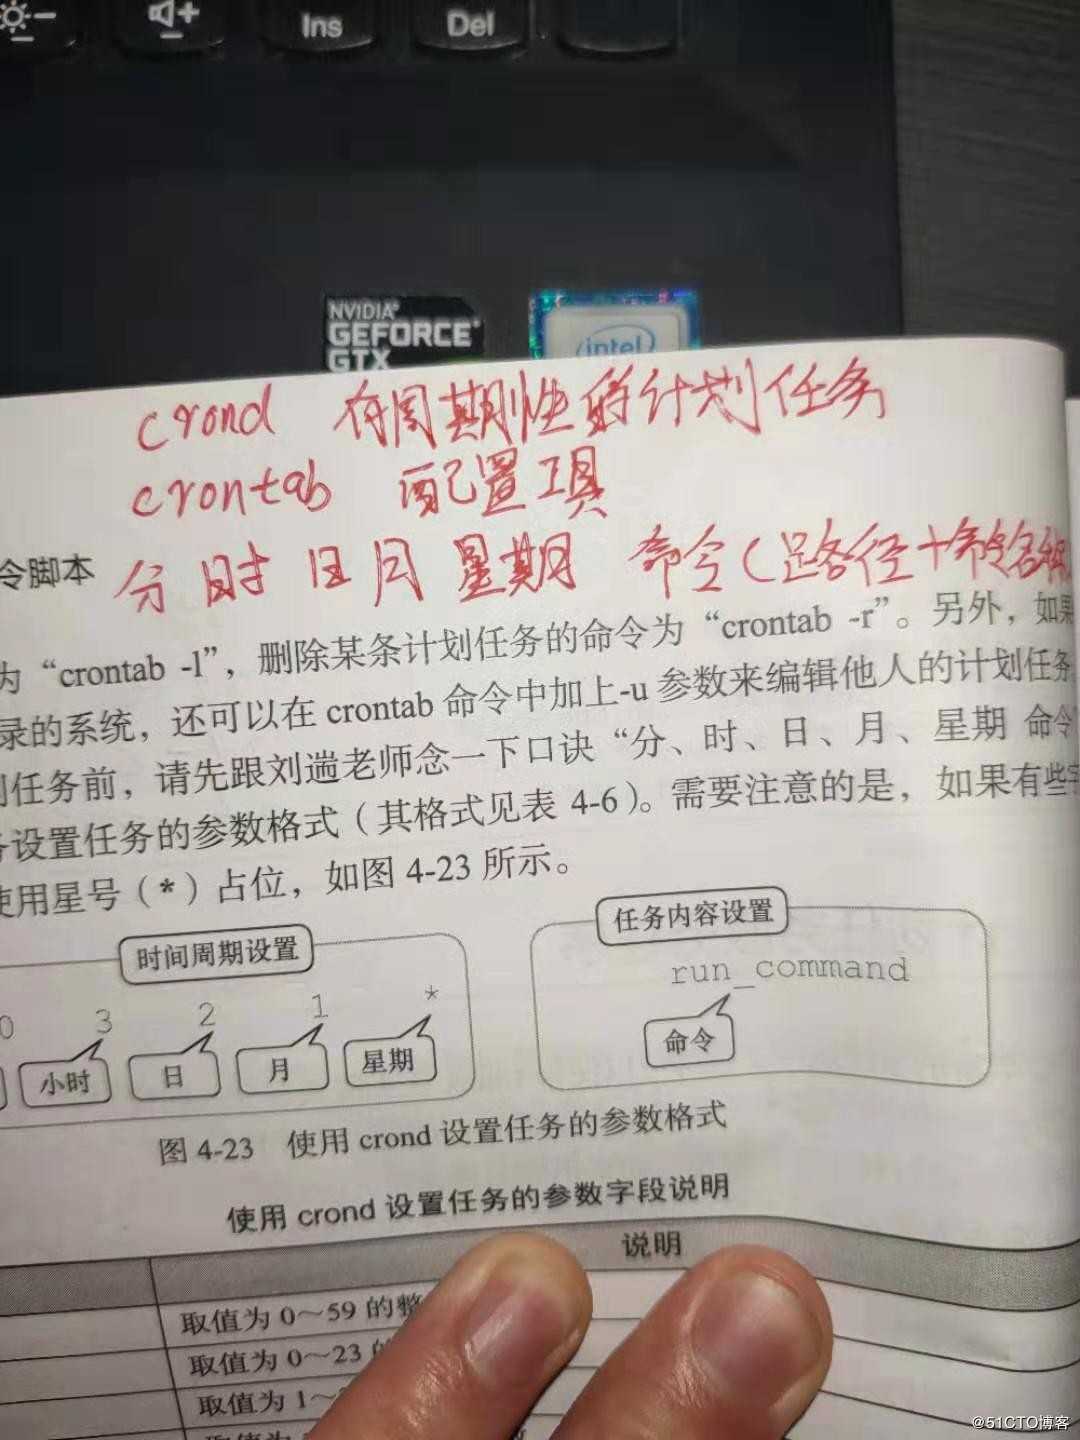 Ins
Del
NVIDIA
GEFORCE
GTX
intel
crond 有周期性的计划任务
crontab 配置工具
分 时 日 月 星期 命令(路径+命令
令脚本
为“crontab -l”，删除某条计划任务的命令为“crontab -r”。另外，如果
录的系统，还可以在 crontab 命令中加上-u 参数来编辑他人的计划任务
任务前，请先跟刘遄老师念一下口诀“分、时、日、月、星期 命令
务设置任务的参数格式（其格式见表 4-6）。需要注意的是，如果有些字
使用星号（*）占位，如图 4-23 所示。
时间周期设置
任务内容设置
0 3 2 1 *
run_command
小时 日 月 星期
命令
图 4-23 使用 crond 设置任务的参数格式
使用 crond 设置任务的参数字段说明
说明
取值为 0～59 的整
取值为 0～23 的
取值为 1～
取值为
@51CTO博客